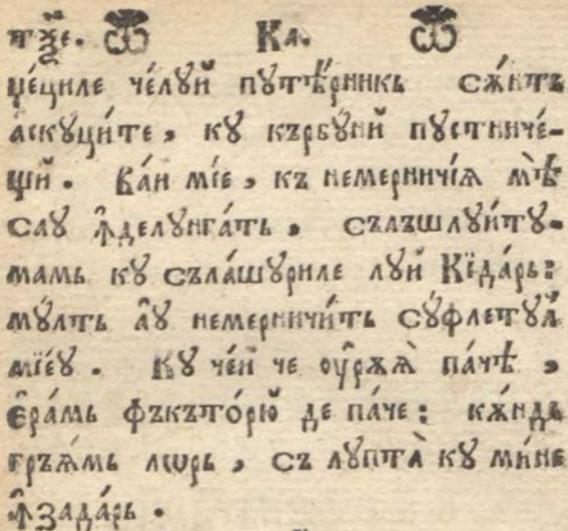 ҂зхѯе. Ѿ Ка. Ѿ
цéциле чéлꙋй пꙋтѣ́рникь сѫ́нтъ
аскꙋци́те, кꙋ кърбꙋнй пꙋстниче́-
щй. Ва́и мі́е, къ немерничі́ѧ мѣ̀
саꙋ ꙟ҆делꙋнга́ть, сълъшлꙋи́тꙋ-
мамь кꙋ съла́шꙋриле лꙋй Кїда́рь:
мꙋ́лть а҆ꙋ немерничи́ть сꙋ́флетꙋл
мїе́ꙋ. Кꙋ че́и че ᲂу҆рѫѧ̀ па́чѣ,
є҆ра́мь фъкъто́рю де па́че: кѫ́ндь
гръѧ́мь лѡрь, съ лꙋпта̀ кꙋ ми́не
ꙟ҆зада́рь.